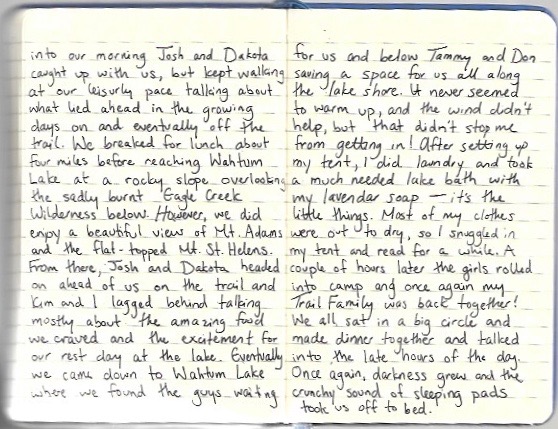 into our morning Josh and Dakota
caught up with us, but kept walking
at our leisurly pace talking about
what lied ahead in the growing
days on and eventually off the
trail. We breaked for lunch about
four miles before reaching Wahtum
Lake at a rocky slope overlooking
the sadly burnt Eagle Creek
Wilderness below. However, we did
enjoy a beautiful view of Mt. Adams
and the flat-topped Mt. St. Helens.
From there, Josh and Dakota headed
on ahead of us on the trail and
Kim and I lagged behind talking
mostly about the amazing food
we craved and the excitement for
our rest day at the lake. Eventually
we came down to Wahtum Lake
where we found the guys waiting
for us and below Tammy and Don
saving a space for us all along
the lake shore. It never seemed
to warm up, and the wind didn't
help, but that didn't stop me
from getting in! After setting up
my tent, I did laundry and took
a much needed lake bath with
my lavendar soap — it's the
little things. Most of my clothes
were out to dry, so I snuggled in
my tent and read for a while. A
couple of hours later the girls rolled
into camp and once again my
Trail Family was back together!
We all sat in a big circle and
made dinner together and talked
into the late hours of the day.
Once again, darkness grew and the
crunchy sound of sleeping pads
took us off to bed.